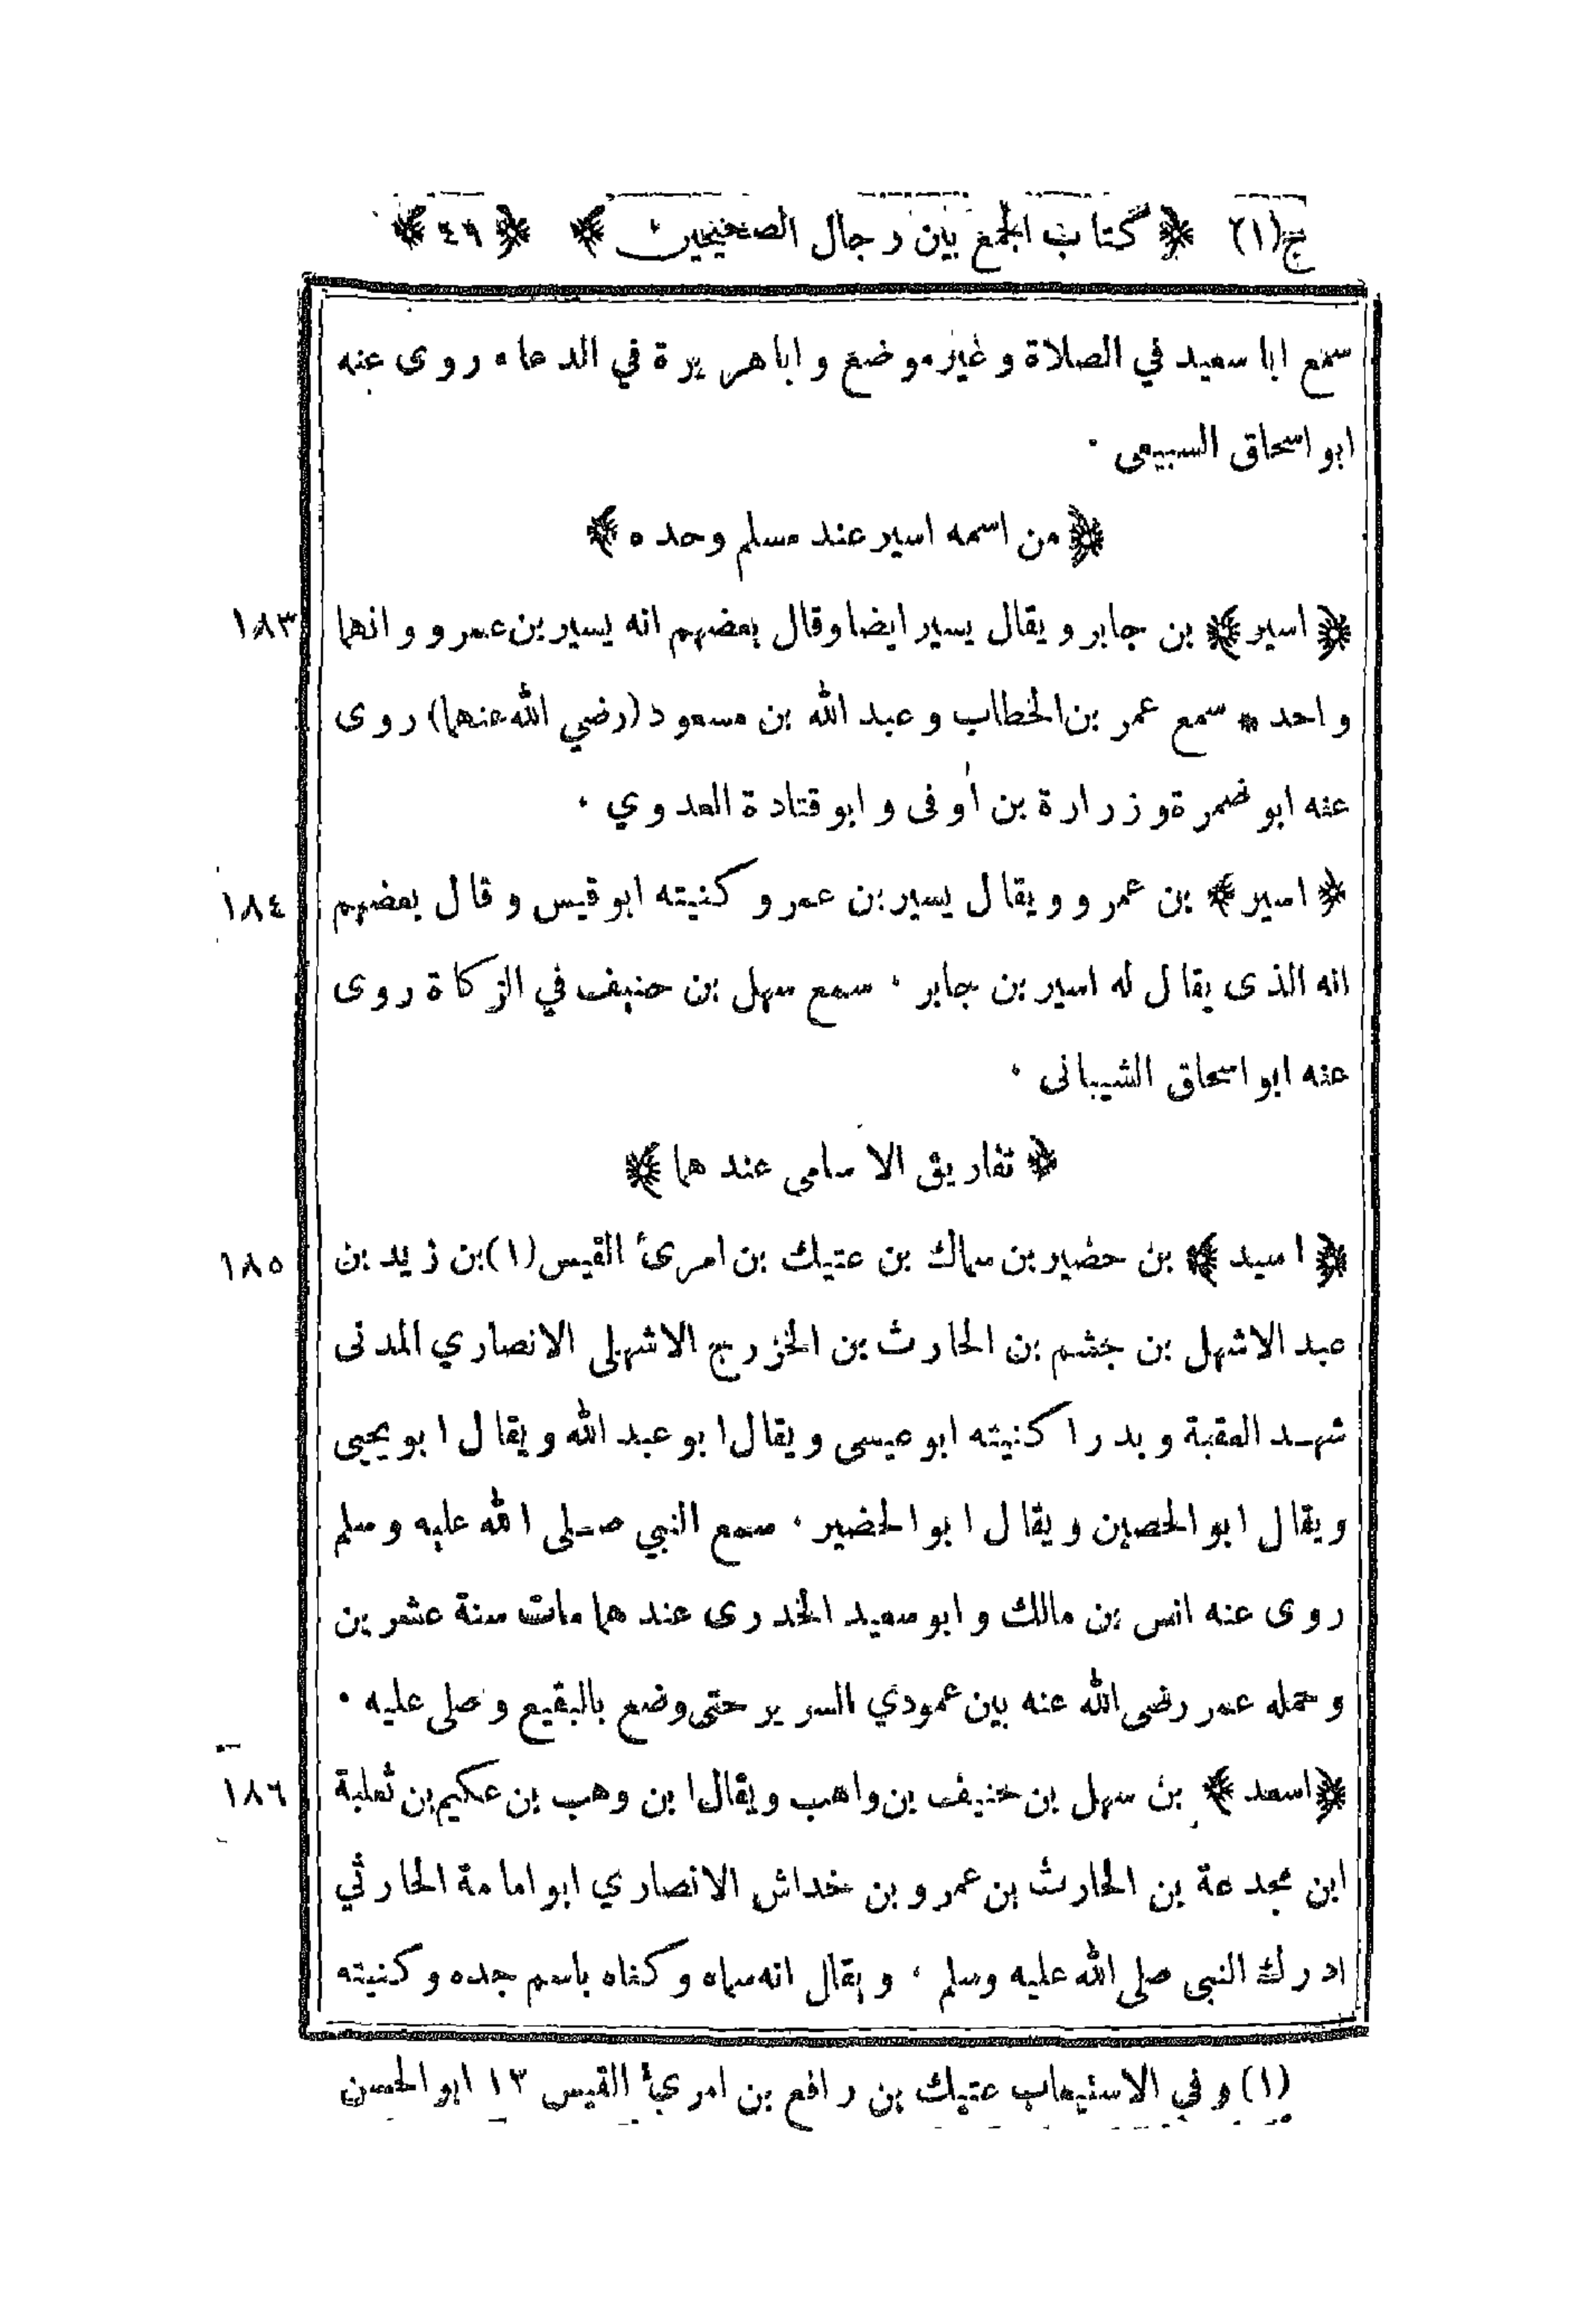 ج(١) ﴿ كتاب الجمع بين رجال الصحيحين ﴾ ﴿ ٤٩ ﴾
سمع ابا سعيد في الصلاة وغير موضع واباهريرة في الدعاء روى عنه
ابو اسحاق السبيعى ٠
﴿ من اسمه اسير عند مسلم وحده ﴾
١٨٣ ﴿ اسير ﴾ بن جابر ويقال يسير ايضا وقال بعضهم انه يسير بن عمرو وانهما
واحد * سمع عمر بن الخطاب وعبد الله بن مسعود (رضي الله عنهما) روى
عنه ابو نضرة وزرارة بن أوفى وابو قتادة العدوي ٠
١٨٤ ﴿ اسير ﴾ بن عمرو ويقال يسير بن عمرو كنيته ابوقيس وقال بعضهم
انه الذى يقال له اسير بن جابر ٠ سمع سهل بن حنيف في الزكاة روى
عنه ابو اسحاق الشيبانى ٠
﴿ تفاريق الاسامى عندهما ﴾
١٨٥ ﴿ اسيد ﴾ بن حضير بن سماك بن عتيك بن امرئ القيس (١) بن زيد بن
عبد الاشهل بن جشم بن الحارث بن الخزرج الاشهلى الانصاري المدنى
شهد العقبة وبدرا كنيته ابو عيسى ويقال ابو عبد الله ويقال ابو يحيى
ويقال ابو الحصين ويقال ابو الحضير ٠ سمع النبي صلى الله عليه وسلم
روى عنه انس بن مالك وابو سعيد الخدرى عندهما مات سنة عشرين
وحمله عمر رضى الله عنه بين عمودي السرير حتى وضع بالبقيع وصلى عليه ٠
١٨٦ ﴿ اسعد ﴾ بن سهل بن حنيف بن واهب ويقال ابن وهب بن عكيم بن ثعلبة
ابن مجدعة بن الحارث بن عمرو بن خداش الانصاري ابو امامة الحارثي
ادرك النبى صلى الله عليه وسلم ٠ ويقال انه سماه وكناه باسم جده وكنيته
(١) وفي الاستيعاب عتيك بن رافع بن امرئ القيس ١٢ ابو الحسن